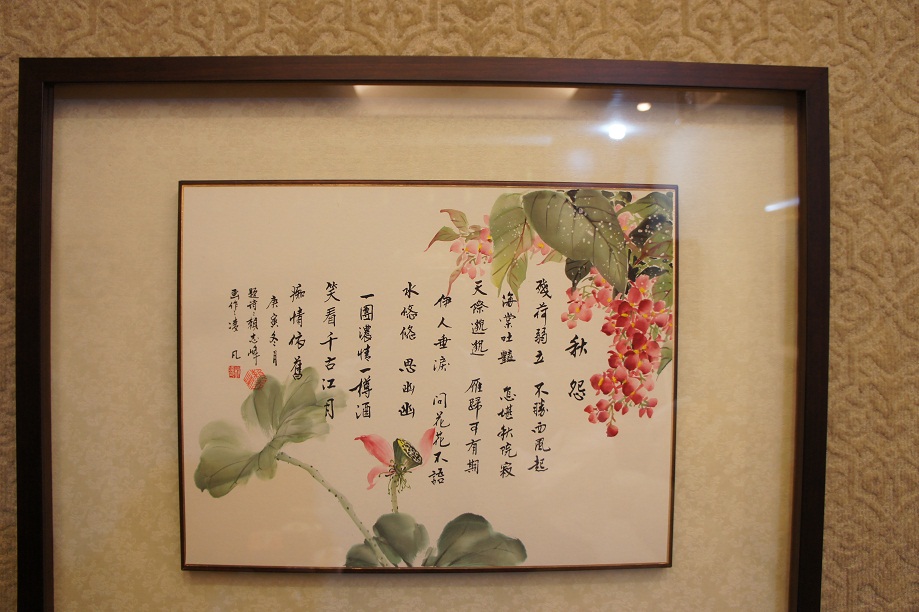 秋怨
殘荷弱立 不勝西風起
海棠吐豔 怎堪秋院寂
天際遙遙 雁歸可有期
伊人垂淚 問花花不語
水悠悠 思幽幽
一團濃情一樽酒
笑看千古江月
痴情依舊
庚寅冬月
題詩:顏志峰
畫作:凌凡